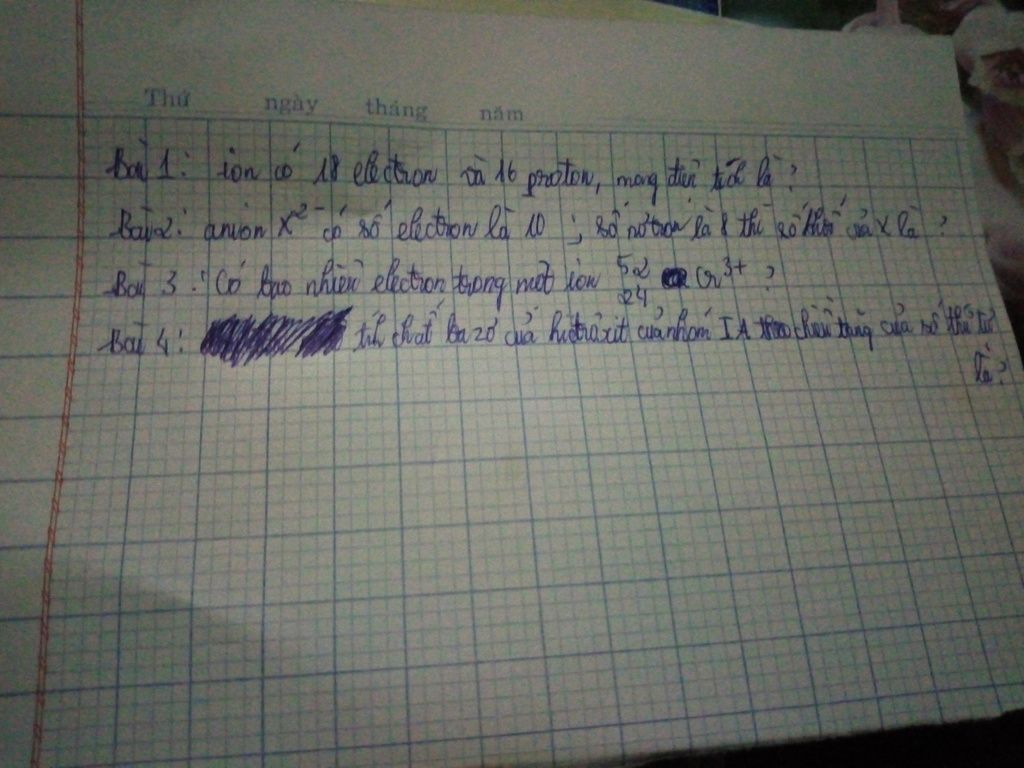 Thứ ngày tháng năm
Bài 1: ion có 18 electron và 16 proton, mang điện tích là?
Bài 2: anion X²⁻ có số electron là 10; số nơtron là 8 thì số khối của X là?
Bài 3: Có bao nhiêu electron trong một ion ⁵²₂₄Cr³⁺?
Bài 4: tính chất bazơ của hiđrôxit của nhóm IA theo chiều tăng của số thứ tự
là?